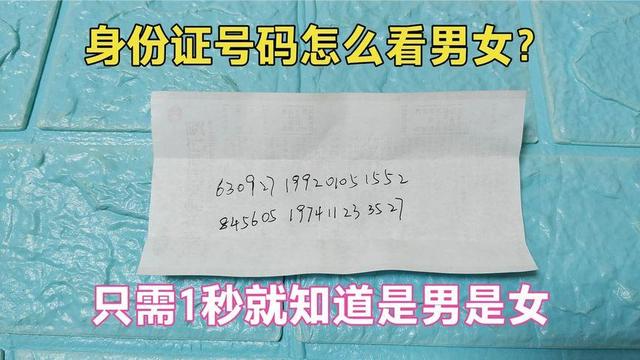 身份证号码怎么看男女?
630927 199201051552
845605 197411233527
只需1秒就知道是男是女